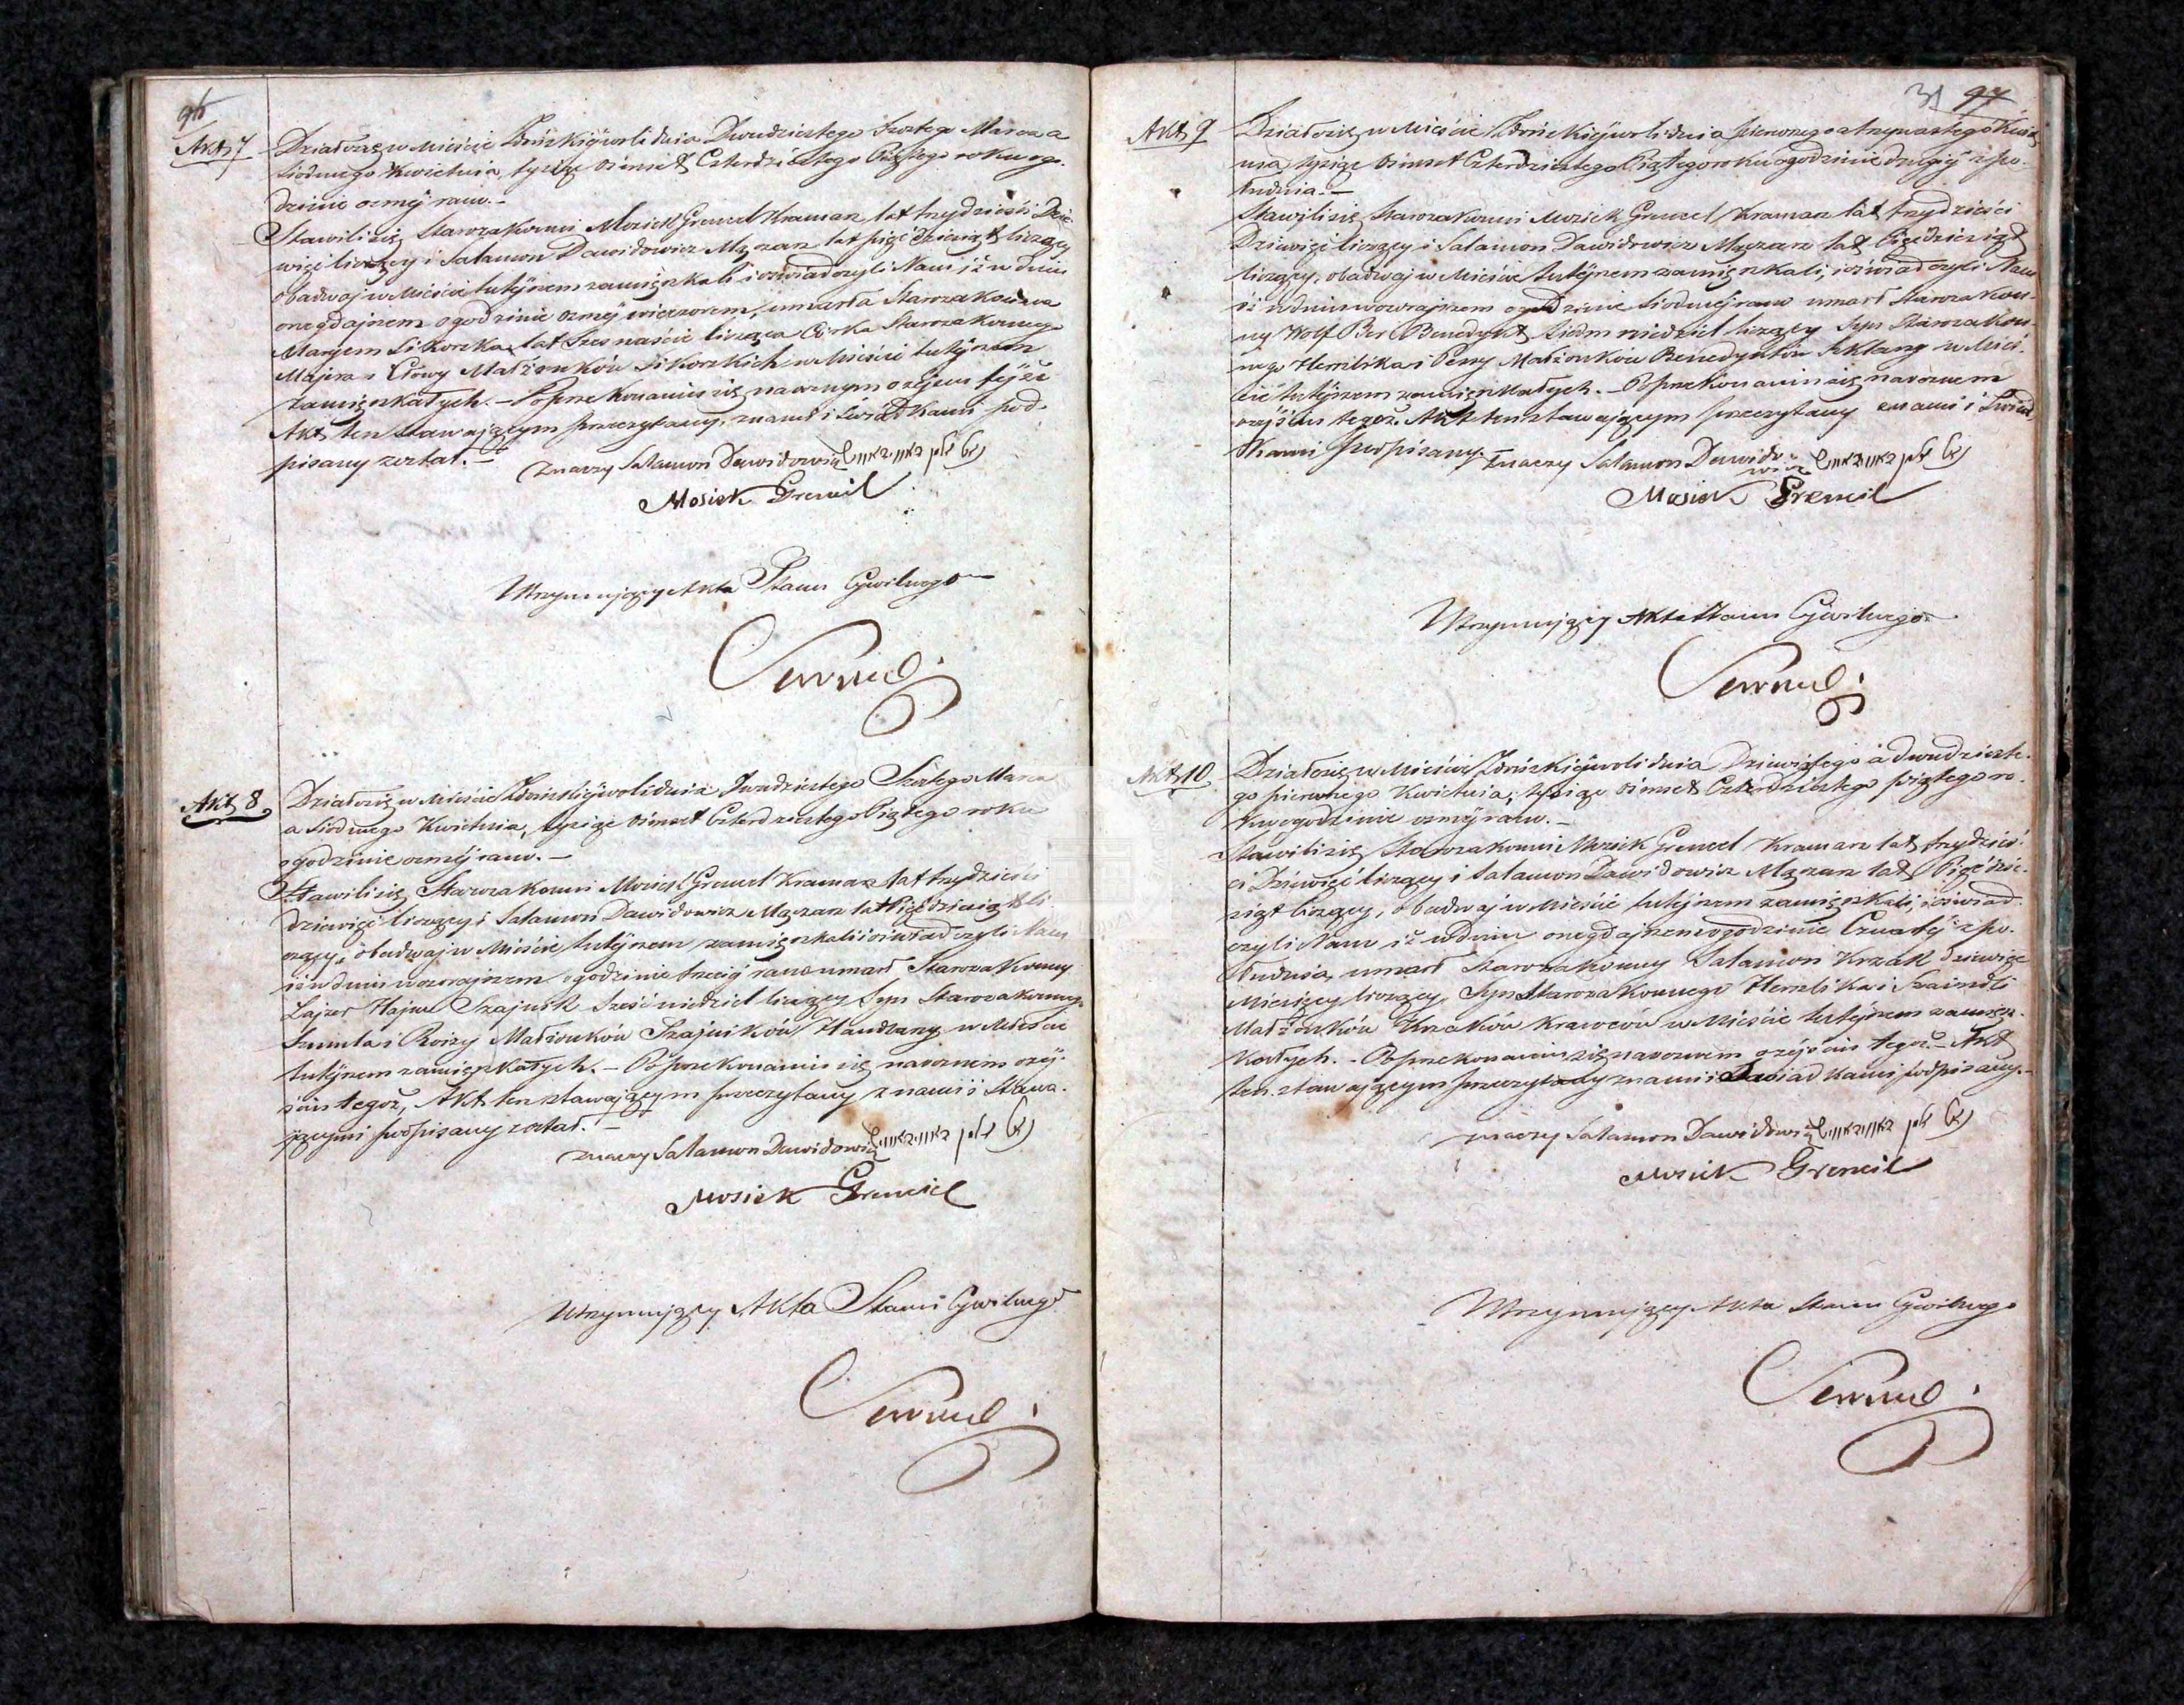 96
Akt 7
Działo się w Mieście Zduńskiéjwoli dnia Dwudziestego Szóstego Marca a
Siódmego Kwietnia, tysiąc ośmset Czterdziestego Piątego roku o go-
dzinie osméj rano. –
Stawili się Starozakonni Mosiek Gremel Kramarz lat trzydzieści Dzie-
więć liczący i Salamon Dawidowicz Mączarz lat pięćdziesiąt liczący
obadwaj w Mieście tutéjszem zamieszkali i oświadczyli Nam iż w dniu
onegdajszem o godzinie osméj wieczorem, umarła Starozakonna
Maryem Sikorska, lat Szesnaście licząca Córka Starozakonnego
Majera i Małżonków Sikorskich w Mieście tutéjszem
zamieszkałych. – Po przekonaniu się naocznym o zéjściu téjże
Akt ten stawającym przeczytany, znami i Świadkami pod-
pisany został. –
znaczy Salamon Dawidowicz
Mosiek Gremiel
Utrzymujący Akta Stanu Cywilnego
Akt 8
Działo się w Mieście Zduńskiéjwoli dnia Dwudziestego Szóstego Marca
a Siódmego Kwietnia, tysiąc ośmset Czterdziestego Piątego roku
o godzinie osméj rano. –
Stawili się Starozakonni Mosiek Gremel Kramarz lat trzydzieści
dziewięć liczący i Salamon Dawidowicz Mączarz lat Pięćdziesiąt li-
czący, obadwaj w Mieście tutéjszem zamieszkali i oświadczyli Nam
iż w dniu wczorajszem o godzinie trzeciéj rano umarł Starozakonny
Lajzer Hajm Szajnik Sześć niedziel liczący Syn Starozakonnego
Szmula i Roizy Małżonków Szajników Handlarzy w Mieście
tutéjszem zamieszkałych. – Po przekonaniu się naocznem o zéj-
ściu tegoż, Akt ten stawającym przeczytany znami i Stawa-
jącymi podpisany został. –
znaczy Salamon Dawidowicz
Mosiek Gremiel
Utrzymujący Akta Stanu Cywilnego
31 97
Akt 9
Działo się w Mieście Zduńskiéjwoli dnia pierwszego a trzynastego Kwiet-
nia tysiąc ośmset Czterdziestego Piątego roku o godzinie drugiéj z po-
łudnia. –
Stawili się Starozakonni Mosiek Gremel Kramarz lat trzydzieści
Dziewięć liczący i Salamon Dawidowicz Mączarz lat Pięćdziesiąt
liczący, obadwaj w Mieście tutéjszem zamieszkali, i oświadczyli Nam
iż w dniu wczorajszem o godzinie Siódméj rano umarł Starozakon-
ny Wolf Ber Benedykt Siedm niedziel liczący Syn Starozakon-
nego Herszlika i Małżonków Benedyktów Szklarzy w Mieś-
cie tutéjszem zamieszkałych. – Po przekonaniu się naocznem
o zéjściu tegoż. Akt ten stawającym przeczytany znami i Świad-
kami podpisany. –
znaczy Salamon Dawido-
wicz
Mosiek Gremiel
Utrzymujący Akta Stanu Cywilnego
Akt 10
Działo się w Mieście Zduńskiéjwoli dnia Dziewiątego a dwudzieste-
go pierwszego Kwietnia, tysiąc ośmset Czterdziestego piątego ro-
ku o godzinie osméj rano. –
Stawili się Starozakonni Mosiek Gremel Kramarz lat trzydzieś-
ci Dziewięć liczący i Salamon Dawidowicz Mączarz lat Pięćdzie-
siąt liczący, obadwaj w Mieście tutéjszem zamieszkali, i oświad-
czyli Nam iż w dniu onegdajszem o godzinie Czwartéj z po-
łudnia, umarł Starozakonny Salamon Krzak dziewięć
Miesięcy liczący, Syn Starozakonnego Herszlika i Szaindli
Małżonków Krzaków Krawców w Mieście tutéjszem zamiesz-
kałych. – Po przekonaniu się naocznem o zéjściu tegoż. – Akt
ten stawającym przeczytany znami i Świadkami podpisany. –
znaczy Salamon Dawidowicz
Mosiek Gremiel
Utrzymujący Akta Stanu Cywilnego